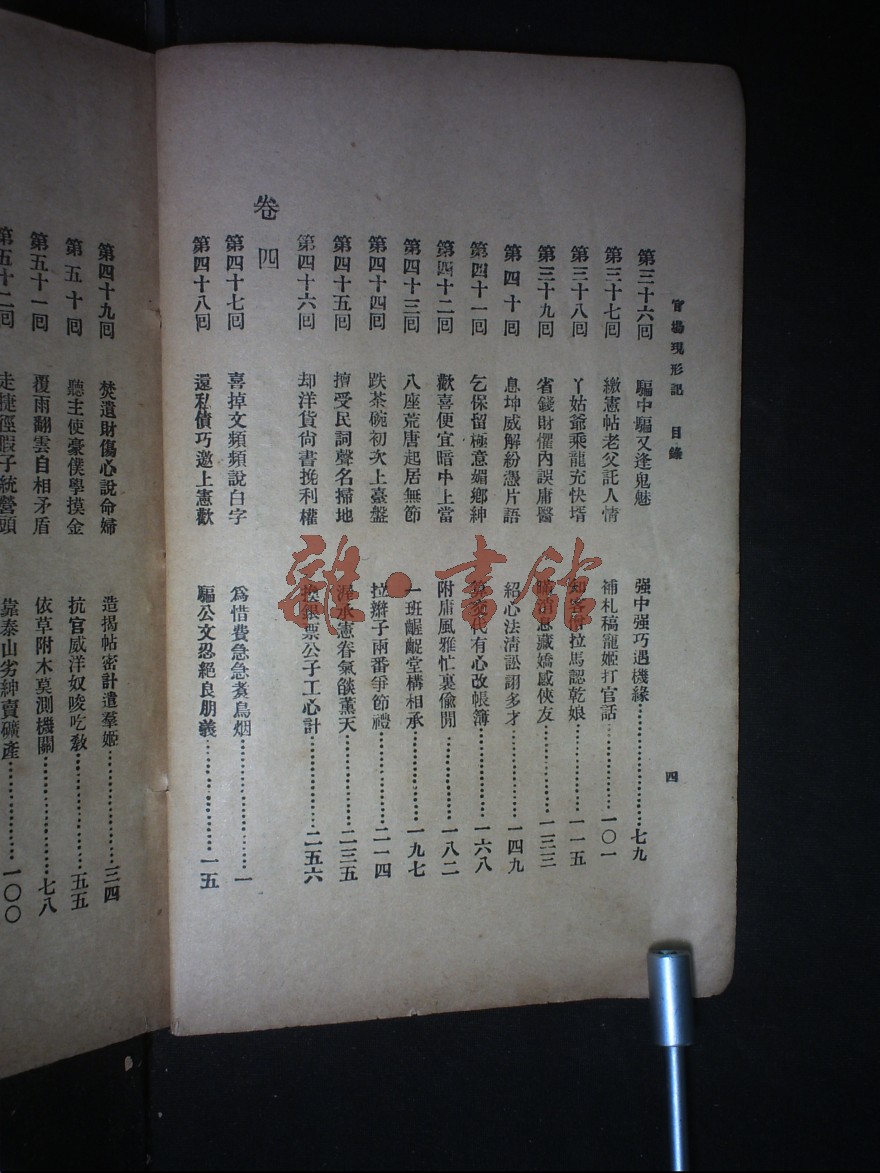 官場現形記 目錄 四
第三十六回 騙中騙又逢鬼魅 强中强巧遇機緣 七九
第三十七回 繳憲帖老父託人情 補札稿寵姬打官話 一〇一
第三十八回 丫姑爺乘龍充快壻 知客僧拉馬認乾娘 一一五
第三十九回 省錢財懼內誤庸醫 瞞消息藏嬌感俠友 一三三
第四十回 息坤威解紛憑片語 紹心法清訟詡多才 一四九
第四十一回 乞保留極意媚鄉紳 算交代有心改帳簿 一六八
第四十二回 歡喜便宜暗中上當 附庸風雅忙裏偷閒 一八二
第四十三回 八座荒唐起居無節 一班齷齪堂構相承 一九七
第四十四回 跌茶碗初次上臺盤 拉辮子兩番爭節禮 二一四
第四十五回 擅受民詞聲名掃地 渥承憲眷氣燄薰天 二三五
第四十六回 却洋貨尙書挽利權 換銀票公子工心計 二五六
卷四
第四十七回 喜掉文頻頻說白字 爲惜費急急煮烏烟 一
第四十八回 還私債巧邀上憲歡 騙公文忍絕良朋義 一五
第四十九回 焚遺財傷心說命婦 造揭帖密計遣羣姬 三四
第五十回 聽主使豪僕學摸金 抗官威洋奴唆吃教 五五
第五十一回 覆雨翻雲自相矛盾 依草附木莫測機關 七八
第五十二回 走捷徑假子統營頭 靠泰山劣紳賣礦產 一〇〇
雜·書館